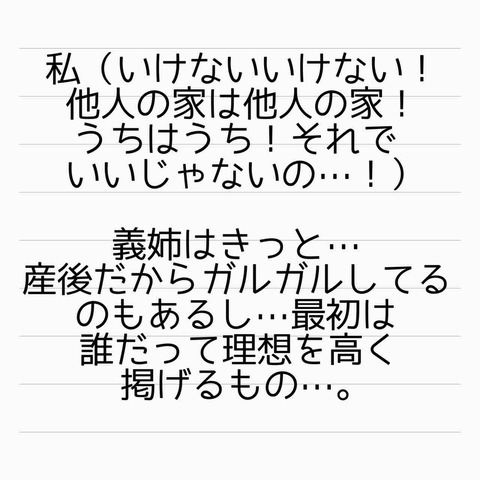 私（いけないいけない！
他人の家は他人の家！
うちはうち！それで
いいじゃないの…！）
義姉はきっと…
産後だからガルガルしてる
のもあるし…最初は
誰だって理想を高く
掲げるもの…。